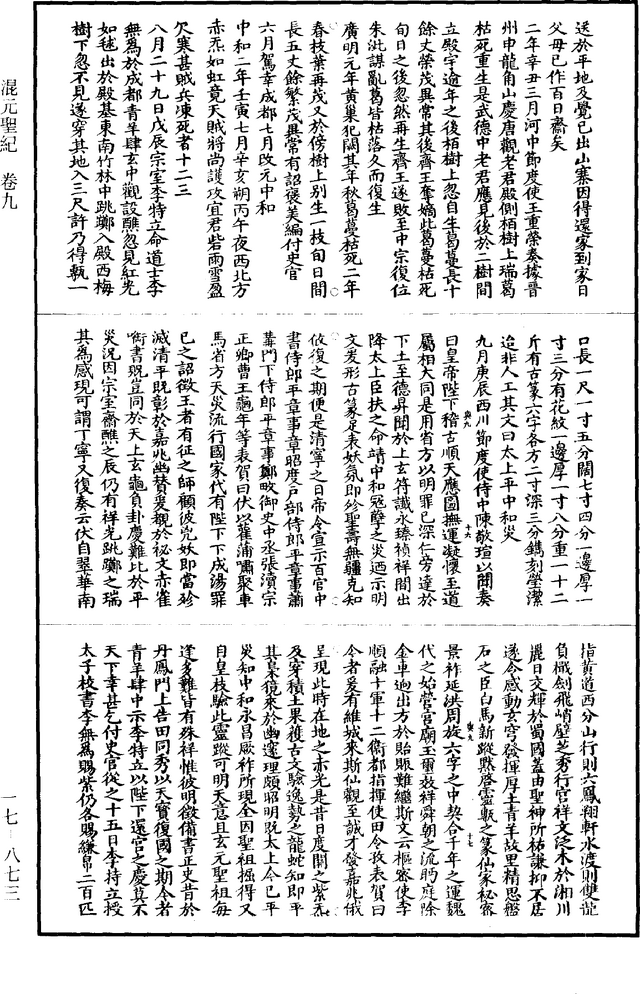 送於平地及覺已出山寨因得還家到家日
父母已作百日齋矣
二年辛丑三月河中節度使王重榮奏據晉
州申龍角山慶唐觀老君殿側栢樹上瑞葛
枯死重生是武德中老君應見後於二樹間
立殿宇逾年之後栢樹上忽自生葛蔓長十
餘丈榮茂異常其後齊王奪嫡此葛蔓枯死
旬日之後忽然再生齊王遂敗至中宗復位
朱泚謀亂葛皆枯落久而復生
廣明元年黄巢犯闕其年秋葛蔓枯死二年
春枝葉再茂又於傍樹上别生一枝旬日間
長五丈餘繁茂異常有詔褒美編付史官
六月駕幸成都七月改元中和
中和二年壬寅七月辛亥朔丙午夜西北方
赤炁如虹竟天賊將尚讓攻宜君砦雨雪盈
尺寒甚賊兵凍死者十二三
八月二十九日戊辰宗室李特立命道士李
無為於成都青羊肆玄中觀設醮忽見紅光
如毬出於殿基東南竹林中跳躑入殿西梅
樹下忽不見遂穿其地入三尺許乃得甎一
口長一尺一寸五分闊七寸四分一邊厚一
寸三分有花紋一邊厚一寸八分重一十二
斤有古篆六字各方二寸深三分鐫刻瑩潔
迨非人工其文曰太上平中和災
九月庚辰西川節度使侍中陳敬瑄以聞奏
曰皇帝陛下稽古順天應圖撫運凝懷玉道
屬相大同是用省方以明罪己深仁旁達於
下土至德昇聞於上玄符讖永臻禎祥間出
降太上臣扶之命靖中和寇孽之災迺示明
文爰形古篆足表妖氛即殄聖壽無疆克知
攸復之期便是清寧之日帝令宣示百官中
書侍郎平章事韋昭度户部侍郎平章事蕭
遘門下侍郎平章事鄭畋御史中丞張瀆宗
正卿曹王龜年等表賀曰伏以萑蒲嘯聚車
馬省方天災流行國家代有陛下下成湯罪
已之詔徵王者有征之師顧彼兇妖即當殄
滅清平既彰於嘉兆幽替爰觀於祕文赤雀
銜書既豈同於天上玄龜負卦慶難比於平
災況因宗室齋醮之辰仍有祥光跳躑之瑞
其為感現可謂丁寧又復奏云伏自翠華南
指黄道西分山行則六鳳翔軒水渡則雙龍
負檝劍飛峭壁芝秀行宫祥文泛木於湘川
麗日交輝於蜀國蓋由聖神所祐謙抑不居
遂令感動玄穹發揮厚土青羊故里精思盤
石之臣白馬新蹤黙啓靈甎之篆仙家秘密
景祚延洪周旋六字之中契合千年之運魏
代之始營宫廟玉璽效祥舜朝之流眄庭除
金車逈出方於貽貺難繼斯文云樞密使李
順融十軍十二衛都指揮使田令孜表賀曰
今者爰有維城來斯仙觀至誠才發嘉兆俄
呈現此時在地之赤光是昔日度關之紫炁
及穿積土果獲古文驗逸勢之龍蛇知即平
其梟獍來於幽邃理頗昭明既太上今已平
災知中和永昌厥祚所現全因聖祖掘得又
自皇枝驗此靈蹤可明天意且玄元聖祖每
逢多難皆有殊祥惟彼明徵備書正史昔於
丹鳳門上告田同秀以天寶復國之期今者
青羊肆中示李特立以陛下還宫之慶莫不
天下幸甚乞付史官從之十五日李特立授
太子校書李無為賜紫仍各賜縑帛二百匹
典九
十六
典九
十七
混元聖紀 卷九
一七-八七三